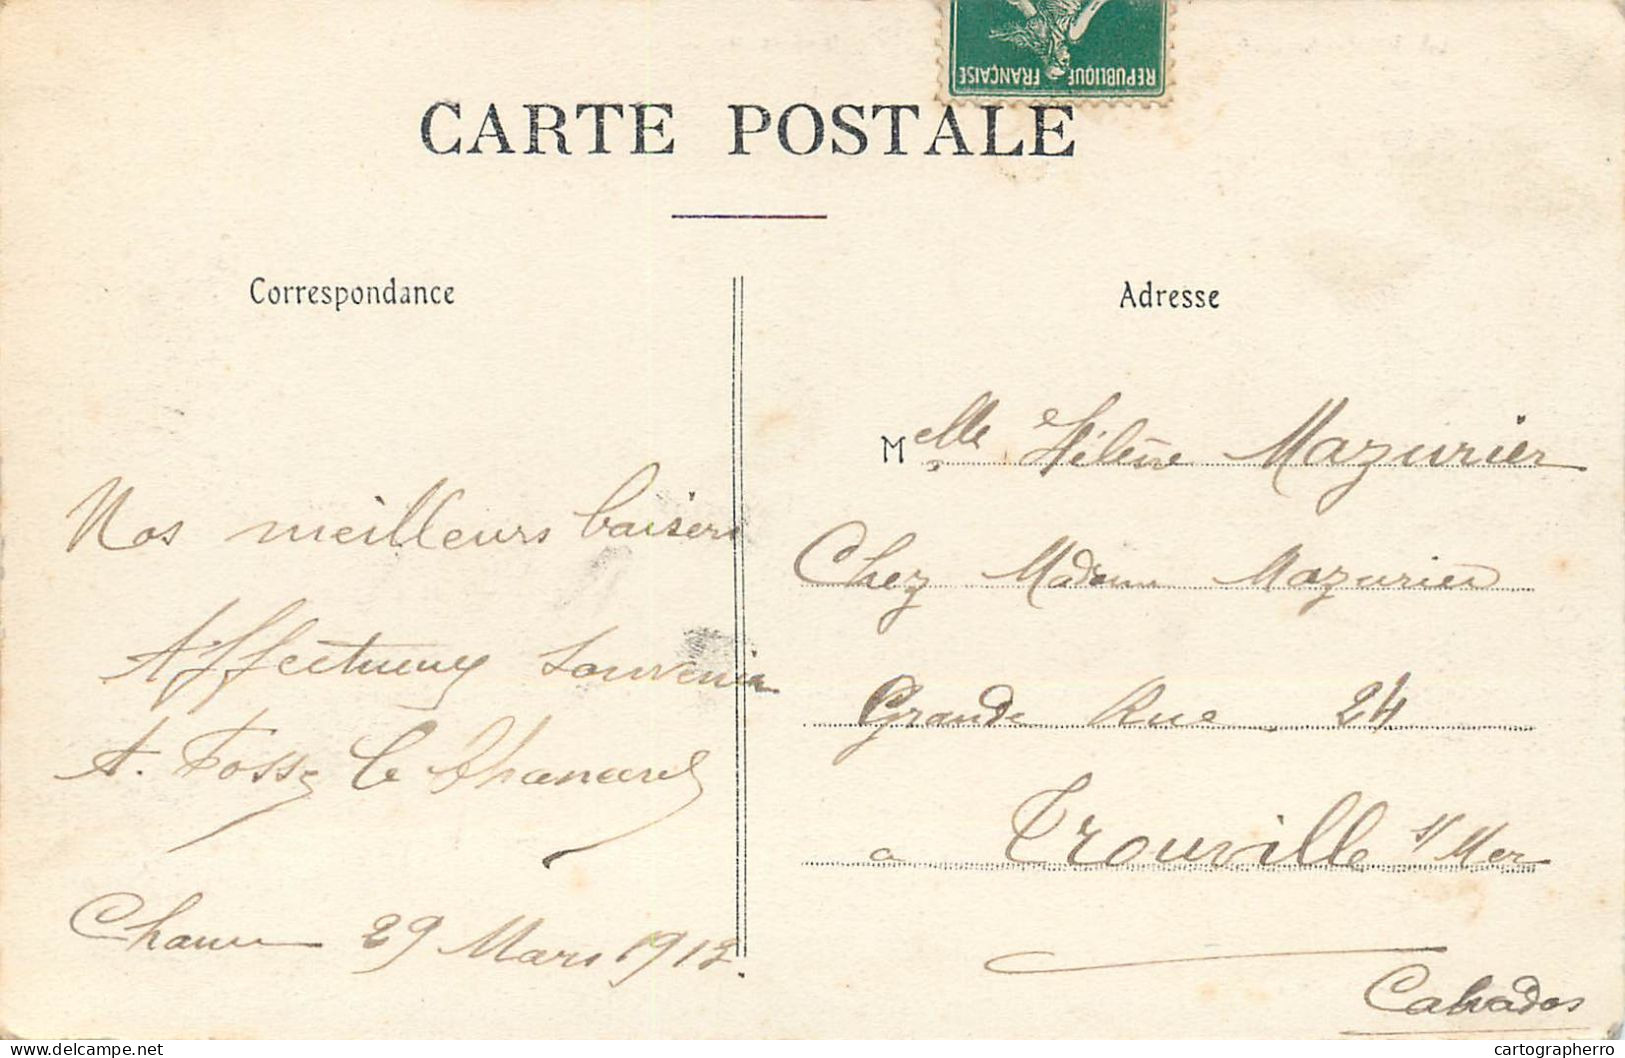 REPUBLIQUE FRANÇAISE
CARTE POSTALE
Correspondance
Adresse
Nos meilleurs baisers
Affectueux souvenir
A. Fosse
29 Mars 1912.
Melle Hélène Mazurier
Chez Madame Mazurier
Grande Rue 24
a Trouville s/ Mer
Calvados
www.delcampe.net
cartographerro